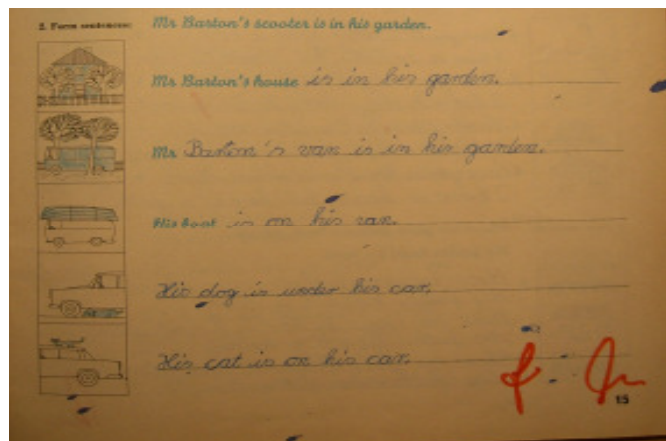 2. Form sentences: Mr Barton's scooter is in his garden.
Mr Barton's house is in his garden.
Mr Barton's van is in his garden.
His boat is on his van.
His dog is under his car.
His cat is on his car.
15